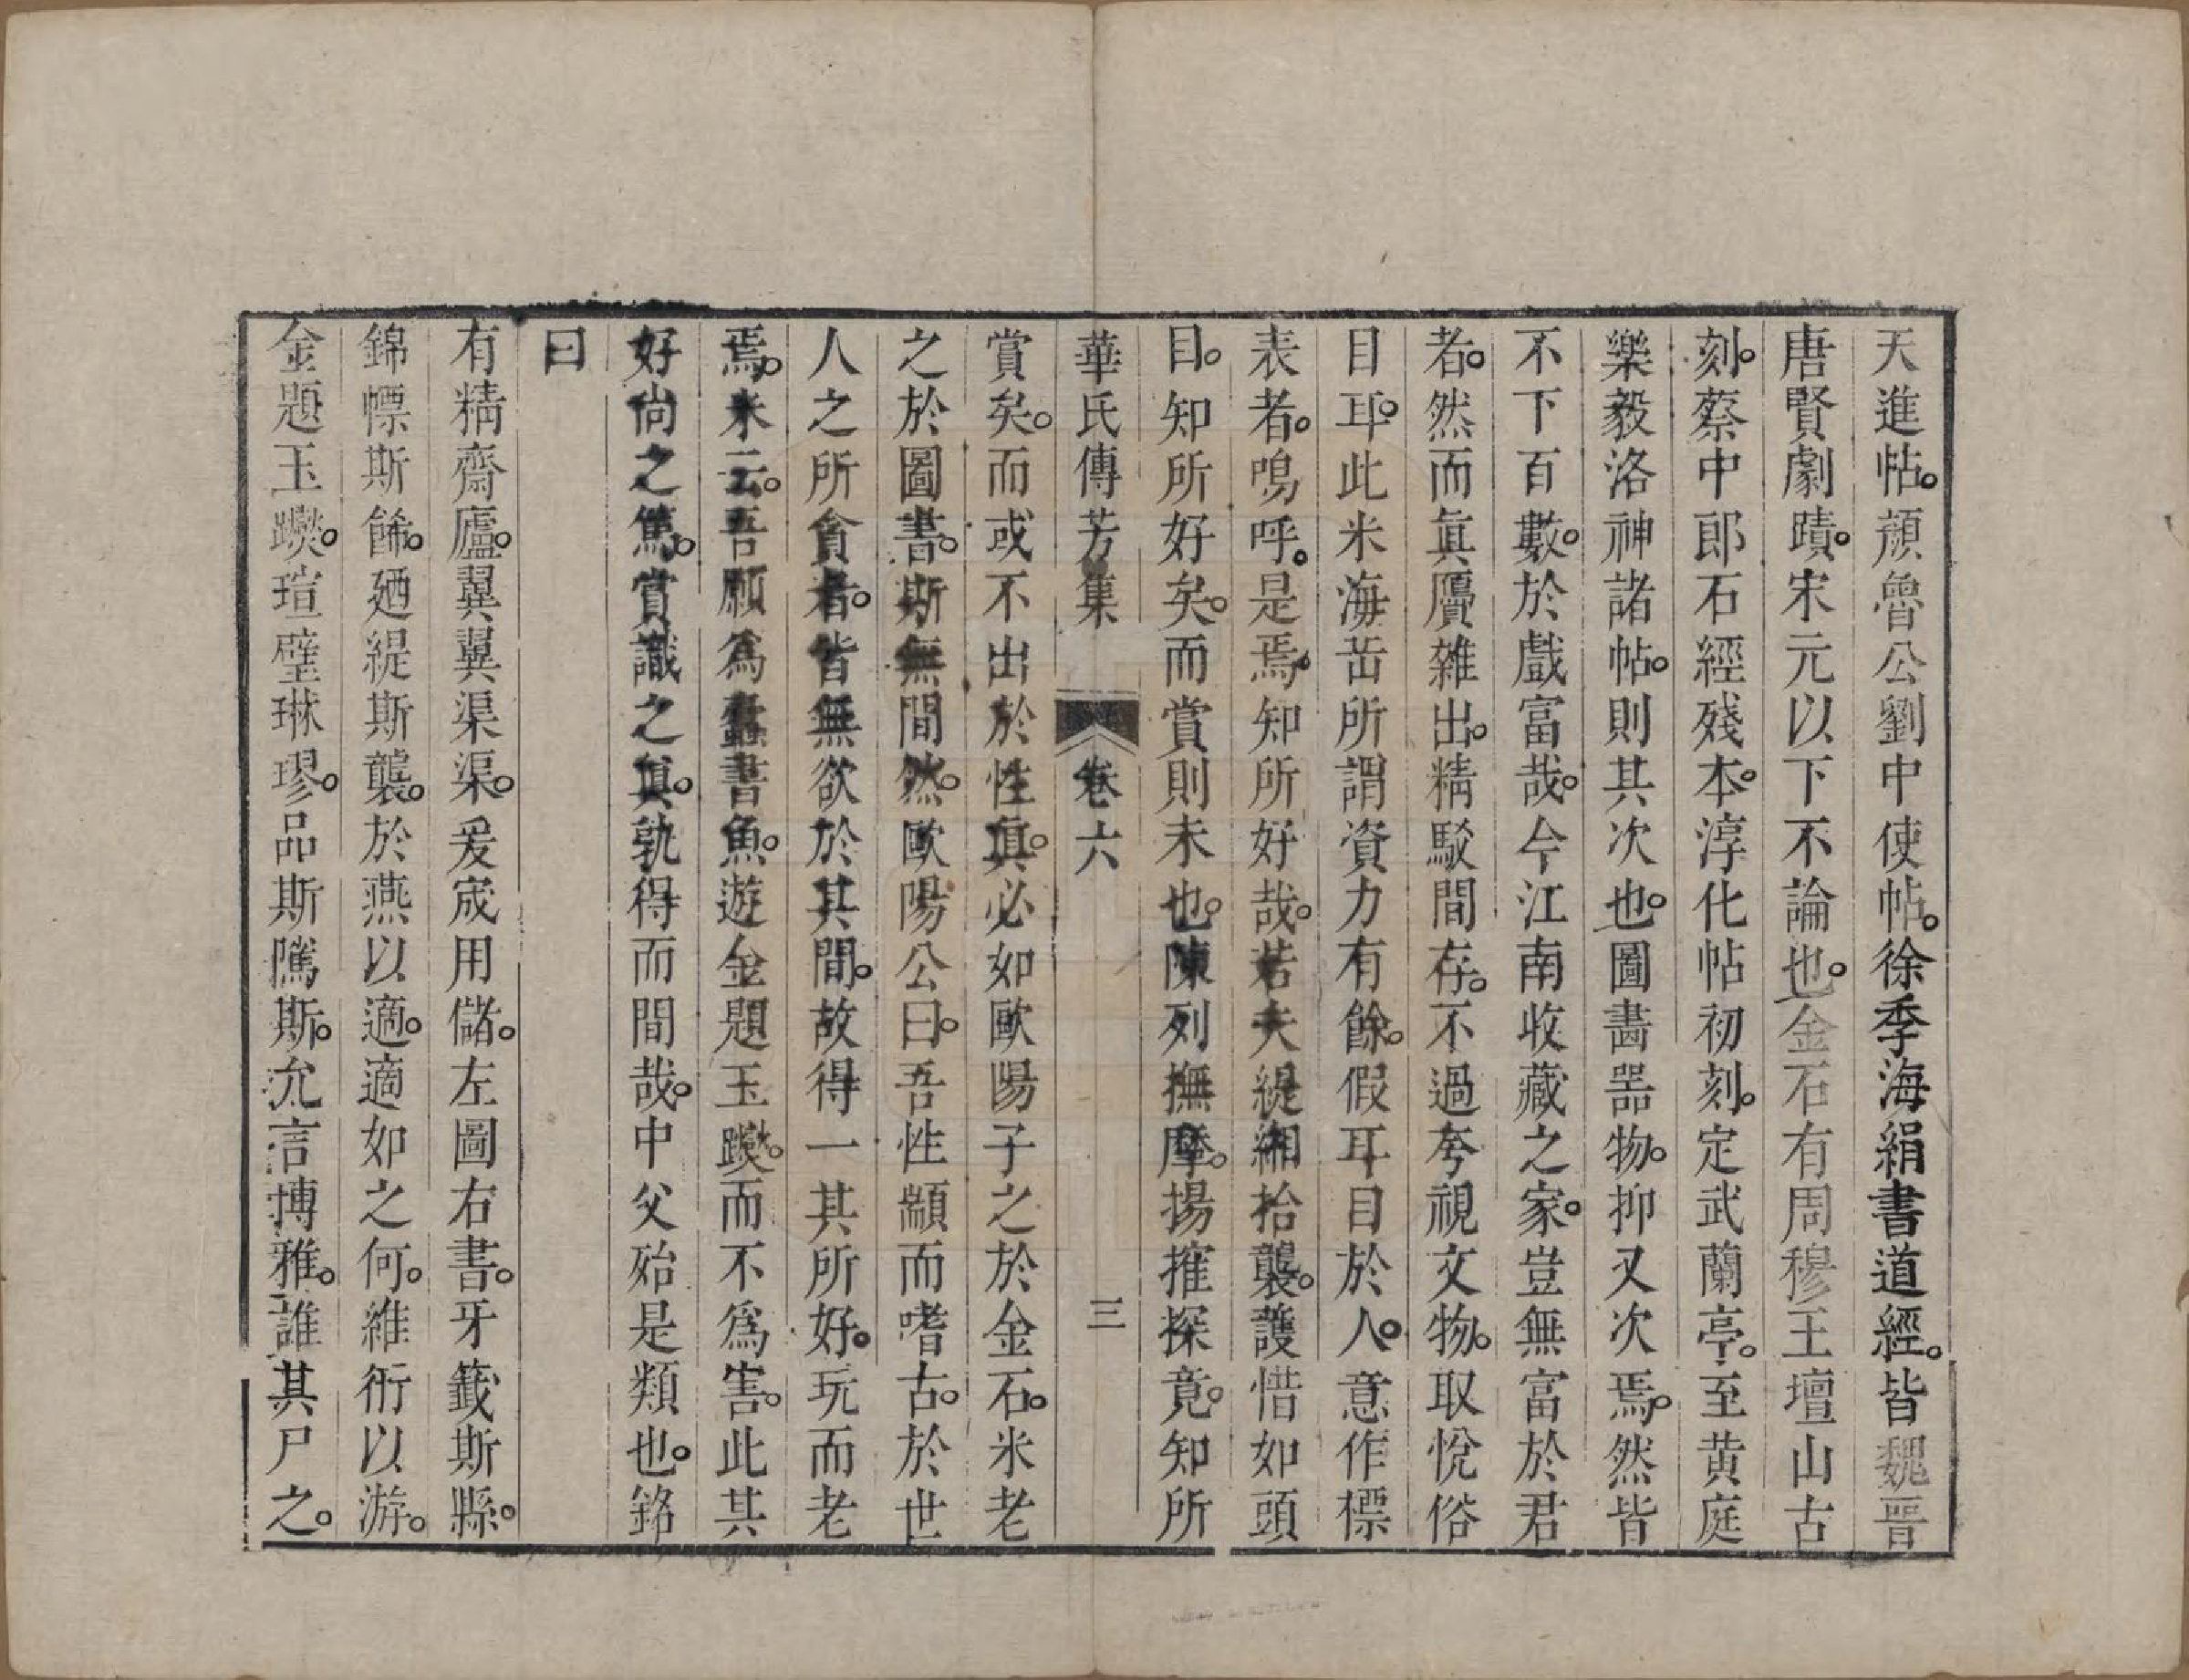 天進帖。顏魯公劉中使帖。徐季海絹書道經。皆魏晉
唐賢劇蹟。宋元以下不論也。金石有周穆王壇山古
刻。蔡中郎石經殘本。淳化帖初刻。定武蘭亭。至黃庭
樂毅洛神諸帖。則其次也。圖畵器物。抑又次焉。然皆
不下百數。於戲富哉。今江南收藏之家。豈無富於君
者。然而眞贗雜出。精駁間存。不過夸視文物。取悅俗
目耳。此米海岳所謂資力有餘。假耳目於人。意作標
表者。嗚呼。是焉知所好哉。若夫緹緗拾襲。護惜如頭
目。知所好矣。而賞則未也。陳列撫摩。揚搉探竟。知所
華氏傳芳集 卷六 三
賞矣。而或不出於性眞。必如歐陽子之於金石。米老
之於圖書。斯無間然。歐陽公曰。吾性顓而嗜古。於世
人之所貪者。皆無欲於其間。故得一其所好。玩而老
焉。米云。吾願爲蠹書魚。遊金題玉躞。而不爲害。此其
好尙之篤。賞識之眞。孰得而間哉。中父殆是類也。銘
曰
有精齋廬。翼翼渠渠。爰宬用儲。左圖右書。牙籤斯縣。
錦幖斯餙。廼緹斯襲。於燕以適。適如之何。維衎以游。
金題玉躞。瑄璧琳璆。品斯隲斯。允言博雅。誰其尸之。